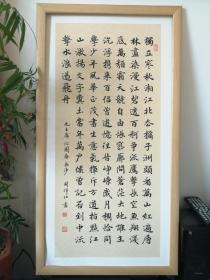 獨立寒秋湘江北去橘子洲頭看萬山紅遍層
林盡染漫江碧透百舸爭流鷹擊長空魚翔淺
底萬類霜天競自由悵寥廓問蒼茫大地誰主
沉浮攜來百侶曾遊憶往昔崢嶸歲月稠恰同
學少年風華正茂書生意氣揮斥方遒指點江
山激揚文字糞土當年萬戶侯曾記否到中流
擊水浪遏飛舟
毛主席沁園春長沙